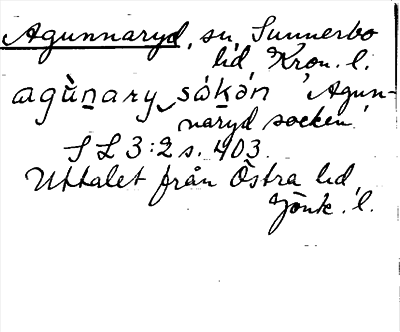 Agunnaryd, sn, Sunnerbo
hd, Kron. l.
agùnary sòkən 'Agun-
naryd socken'
SL 3:2 s. 403.
Uttalet från Östra hd,
Jönk. l.